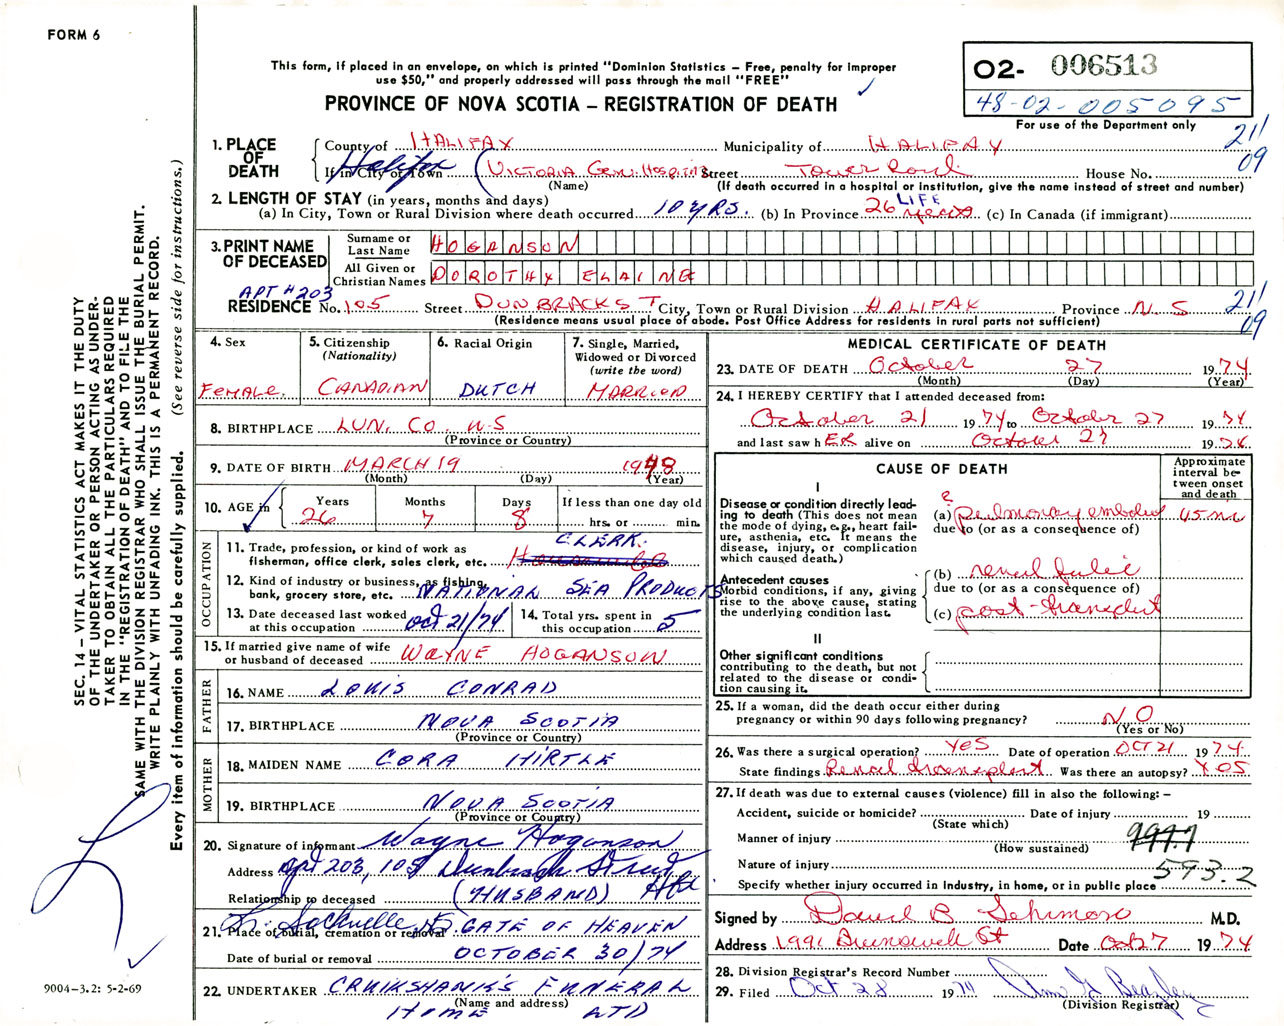 FORM 6
This form, if placed in an envelope, on which is printed "Dominion Statistics – Free, penalty for improper
use $50," and properly addressed will pass through the mail "FREE"
PROVINCE OF NOVA SCOTIA – REGISTRATION OF DEATH
O2- 006513
48-02-005095
For use of the Department only
SEC. 14 – VITAL STATISTICS ACT MAKES IT THE DUTY
OF THE UNDERTAKER OR PERSON ACTING AS UNDER-
TAKER TO OBTAIN ALL THE PARTICULARS REQUIRED
IN THE "REGISTRATION OF DEATH" AND TO FILE THE
SAME WITH THE DIVISION REGISTRAR WHO SHALL ISSUE THE BURIAL PERMIT.
WRITE PLAINLY WITH UNFADING INK. THIS IS A PERMANENT RECORD.
Every item of information should be carefully supplied. (See reverse side for instructions.)
1. PLACE OF DEATH
County of HALIFAX Municipality of HALIFAX 211
09
If in City or Town Halifax (VICTORIA GEN. HOSPITAL Street Tower Road House No.
(Name) (If death occurred in a hospital or institution, give the name instead of street and number)
2. LENGTH OF STAY (in years, months and days)
(a) In City, Town or Rural Division where death occurred 10 YRS. (b) In Province 26 years LIFE (c) In Canada (if immigrant)
3. PRINT NAME OF DECEASED
Surname or Last Name HOGANSON
All Given or Christian Names DOROTHY ELAINE
APT # 203
RESIDENCE No. 105 Street DUNBRACK ST City, Town or Rural Division HALIFAX Province N. S 211
09
(Residence means usual place of abode. Post Office Address for residents in rural parts not sufficient)
4. Sex
Female.
5. Citizenship
(Nationality)
CANADIAN
6. Racial Origin
DUTCH
7. Single, Married,
Widowed or Divorced
(write the word)
MARRIED
8. BIRTHPLACE LUN. CO. N-S
(Province or Country)
9. DATE OF BIRTH MARCH 19 1948
(Month) (Day) (Year)
10. AGE in Years 26 Months 7 Days 8 If less than one day old
hrs. or min.
OCCUPATION
11. Trade, profession, or kind of work as
fisherman, office clerk, sales clerk, etc. CLERK.
12. Kind of industry or business, as fishing,
bank, grocery store, etc. NATIONAL SEA PRODUCTS
13. Date deceased last worked
at this occupation Oct 21/74
14. Total yrs. spent in
this occupation 5
15. If married give name of wife
or husband of deceased WAYNE HOGANSON
FATHER
16. NAME LOUIS CONRAD
17. BIRTHPLACE NOVA SCOTIA
(Province or Country)
MOTHER
18. MAIDEN NAME CORA HIRTLE
19. BIRTHPLACE NOVA SCOTIA
(Province or Country)
20. Signature of informant Wayne Hoganson
Address Apt 203, 105 Dunbrack Street Hfx
Relationship to deceased (HUSBAND)
21. Place of burial, cremation or removal Lr. Sackville NS GATE OF HEAVEN
Date of burial or removal OCTOBER 30/74
22. UNDERTAKER CRUIKSHANK'S FUNERAL
(Name and address)
HOME LTD
9004-3.2: 5-2-69
MEDICAL CERTIFICATE OF DEATH
23. DATE OF DEATH October 27 1974
(Month) (Day) (Year)
24. I HEREBY CERTIFY that I attended deceased from:
October 21 1974 to October 27 1974
and last saw hER alive on October 27 1974
CAUSE OF DEATH
Approximate
interval be-
tween onset
and death
I
Disease or condition directly lead-
ing to death (This does not mean
the mode of dying, e.g., heart fail-
ure, asthenia, etc. It means the
disease, injury, or complication
which caused death.)
(a) ? pulmonary embolus 45 min
due to (or as a consequence of)
Antecedent causes
Morbid conditions, if any, giving
rise to the above cause, stating
the underlying condition last.
(b) renal failure
due to (or as a consequence of)
(c) post-transplant
II
Other significant conditions
contributing to the death, but not
related to the disease or condi-
tion causing it.
25. If a woman, did the death occur either during
pregnancy or within 90 days following pregnancy? NO
(Yes or No)
26. Was there a surgical operation? YES Date of operation OCT 21 1974
State findings Renal transplant Was there an autopsy? YES
27. If death was due to external causes (violence) fill in also the following: –
Accident, suicide or homicide? Date of injury 19
(State which)
Manner of injury
(How sustained)
Nature of injury 593.2
Specify whether injury occurred in Industry, in home, or in public place
Signed by David B M.D.
Address 1991 Brunswick St Date Oct 27 1974
28. Division Registrar's Record Number
29. Filed Oct 28 1974
(Division Registrar)